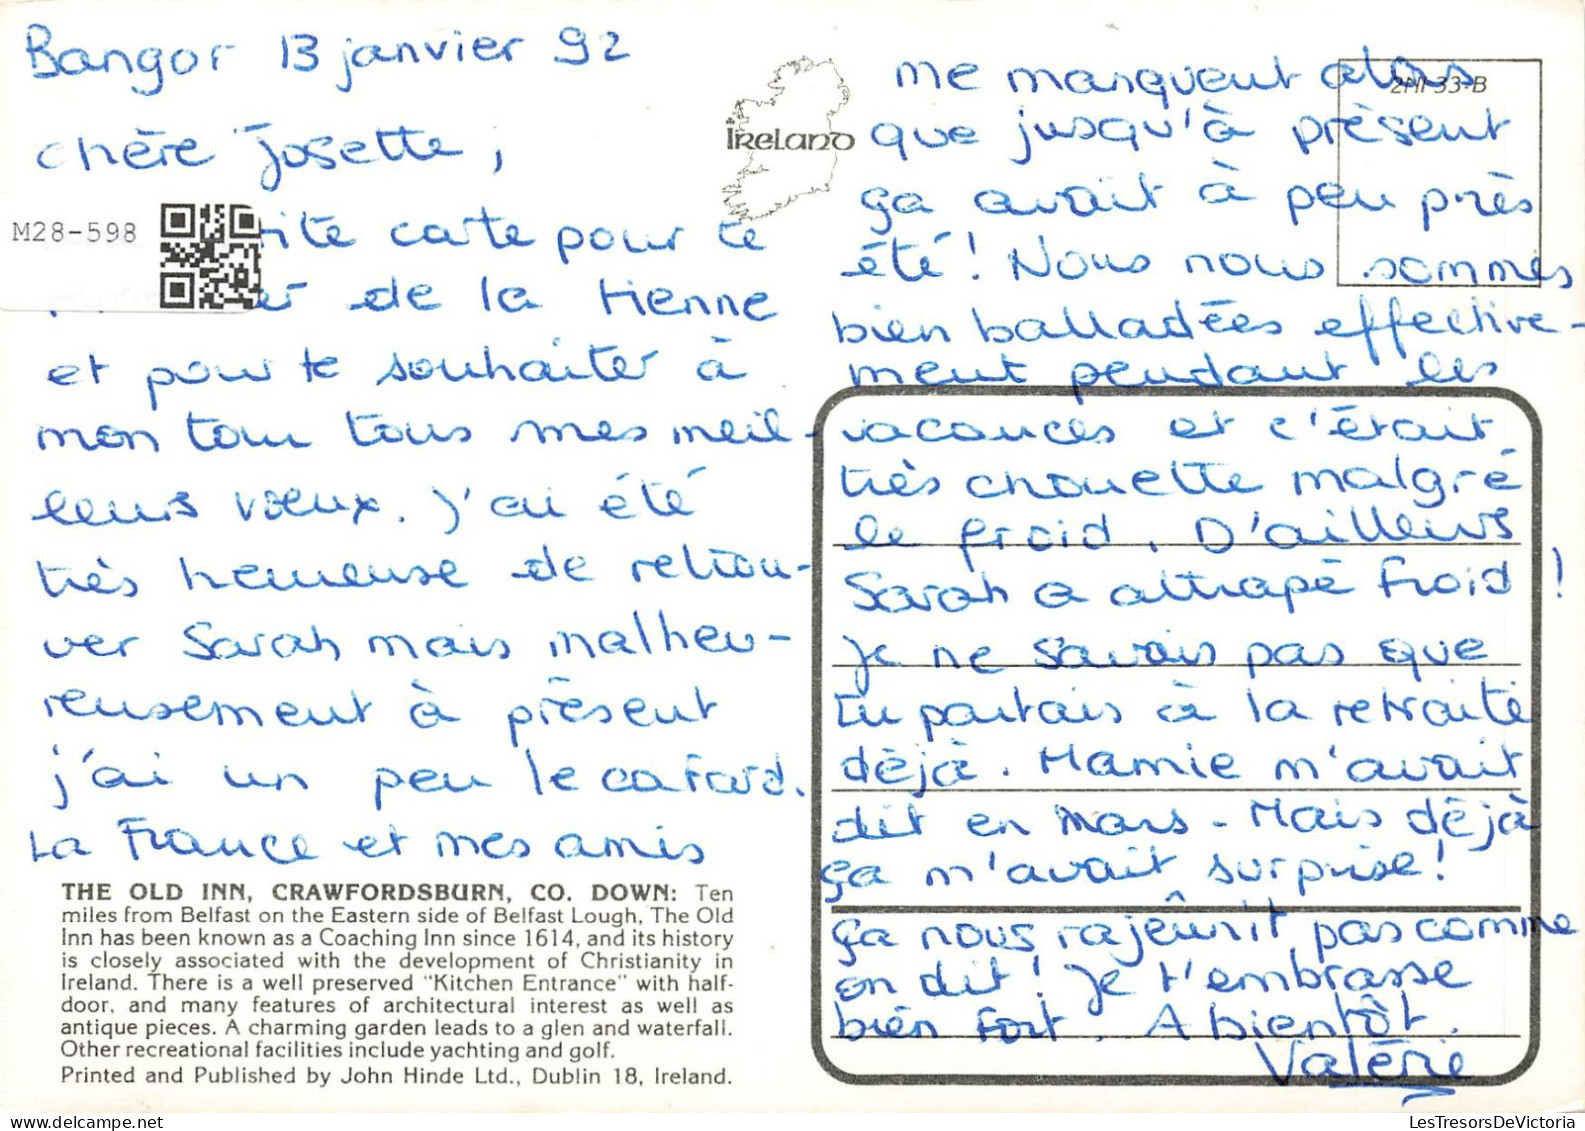 Bangor 13 janvier 92
chère Josette,
M28-598
carte pour te
de la tienne
et pour te souhaiter à
mon tour tous mes meil-
leurs vœux. J'ai été
très heureuse de retrou-
ver Sarah mais malheu-
reusement à présent
j'ai un peu le cafard.
La France et mes amis
THE OLD INN, CRAWFORDSBURN, CO. DOWN: Ten
miles from Belfast on the Eastern side of Belfast Lough, The Old
Inn has been known as a Coaching Inn since 1614, and its history
is closely associated with the development of Christianity in
Ireland. There is a well preserved "Kitchen Entrance" with half-
door, and many features of architectural interest as well as
antique pieces. A charming garden leads to a glen and waterfall.
Other recreational facilities include yachting and golf.
Printed and Published by John Hinde Ltd., Dublin 18, Ireland.
IRELAND
2NI-33-B
me manquent alors
que jusqu'à présent
ça avait à peu près
été! Nous nous sommes
bien balladées effective-
ment pendant les
vacances et c'était
très chouette malgré
le froid. D'ailleurs
Sarah a attrapé froid!
Je ne savais pas que
tu partais à la retraite
déjà. Mamie m'avait
dit en Mars - Mais déjà
ça m'avait surprise!
ça nous rajeûnit pas comme
on dit! Je t'embrasse
bien fort. A bientôt.
Valérie
LesTresorsDeVictoria